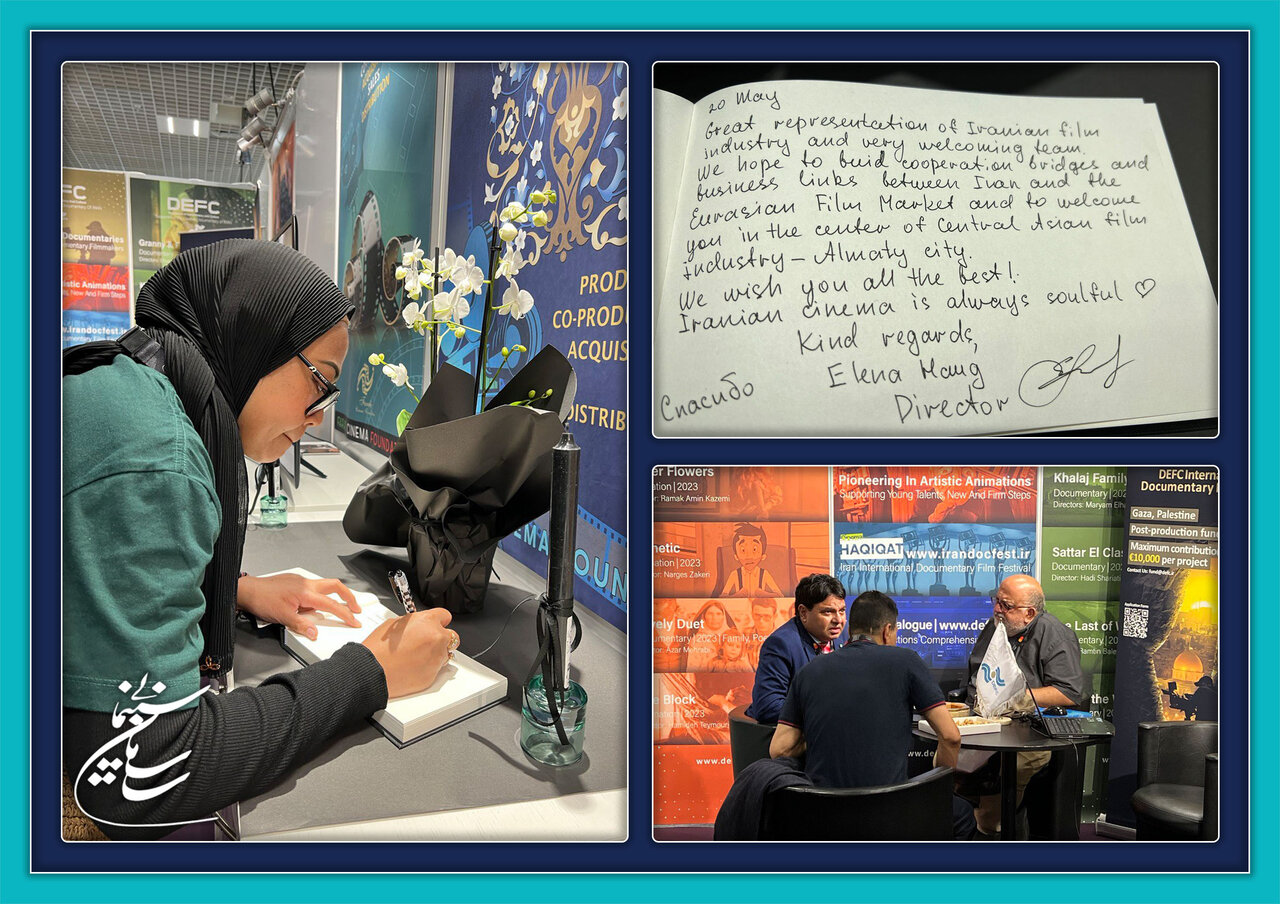 SALES
DISTRIBUTION
DEFC
Documentaries
Artistic Animations
New And Firm Steps
www.irandocfest.ir
DEFC
Granny
CINEMA
PROD
CO-PROD
ACQUIS
DISTRIB
سازمان سینمایی
20 May
Great representation of Iranian film
industry and very welcoming team.
We hope to buid cooperation bridges and
business links between Iran and the
Eurasian Film Market and to welcome
you in the center of Central Asian film
industry – Almaty city.
We wish you all the best!
Iranian cinema is always soulful ♡
Kind regards,
Elena
Director
Спасибо
er Flowers
Documentary | 2023
or: Ramak Amin Kazemi
netic
ation | 2023
or: Narges Zakeri
ely Duet
umentary | 2023 | Family,
: Azar Mehrabi
e Block
nation | 2023
www.de
Pioneering In Artistic Animations
Supporting Young Talents, New And Firm Steps
HAQIQAT www.irandocfest.ir
Iran International Documentary Film Festival
alogue | www.def
tions Comprehensi
Khalaj Family
Documentary | 202
Directors: Maryam Elh
Sattar El Clas
Documentary
Director: Hadi Shariati
he Last of
the W
DEFC Interna
Documentary
Gaza, Palestine
Post-production fun
Maximum contributio
€10,000 per project